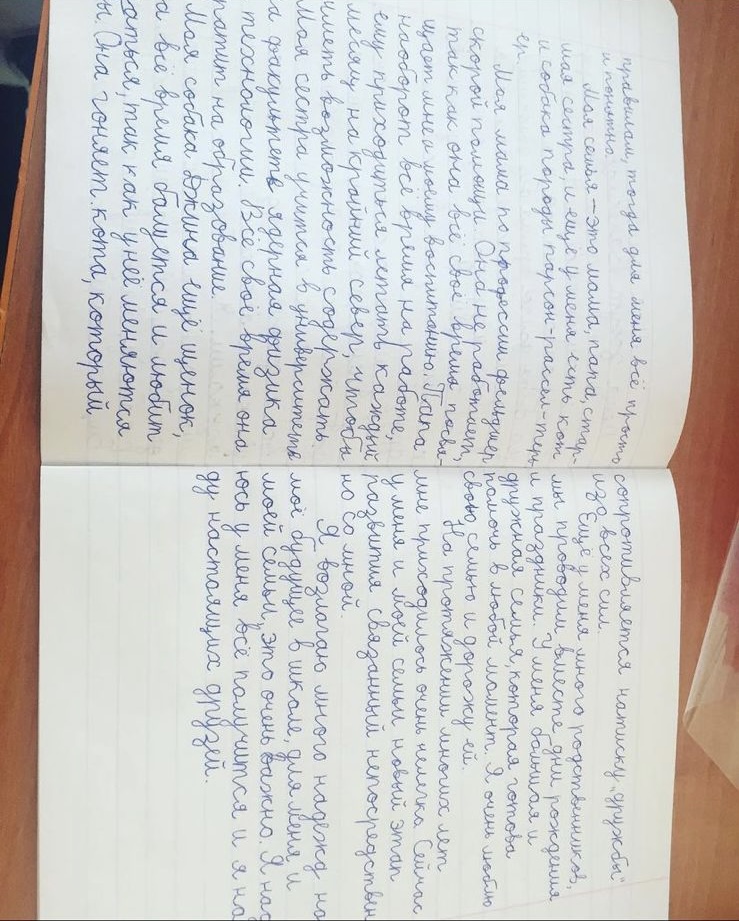 правилам, тогда для меня всё просто
и понятно.
Моя семья – это мама, папа, стар-
шая сестра, и ещё у меня есть кот
и собака породы парсон-рассел-терь
ер.
Моя мама по профессии фельдшер
скорой помощи. Она не работает,
так как она всё своё время посвя-
щает мне и моему воспитанию. Папа
наоборот всё время на работе,
ему приходиться летать каждый
месяц на крайний север, чтобы
иметь возможность содержать
Моя сестра учится в университете
и факультете ядерная физика
технологии. Всё своё время она
тратит на образование.
Моя собака Джина ещё щенок,
а всё время балуется и любит
аться, так как у неё меняются
ы. Она гоняет кота, который
сопротивляется натиску „дружбы"
изо всех сил.
Ещё у меня много родственников,
мы проводим вместе дни рождения
и праздники. У меня большая и
дружная семья, которая готова
помочь в любой момент. Я очень люблю
свою семью и дорожу ей.
На протяжении многих лет
мне приходилось очень нелегко. Сейчас
у меня и моей семьи новый этап
развития связанный непосредствен
но со мной.
Я возлагаю много надежд на
моё будущее в школе, для меня и
моей семьи, это очень важно. Я над
юсь у меня всё получится и я на
ду настоящих друзей.